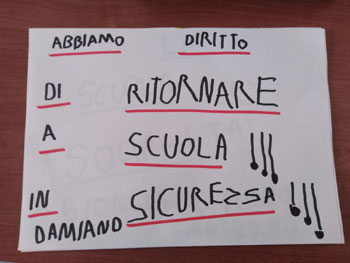 ABBIAMO DIRITTO
DI RITORNARE
A SCUOLA !!!
IN SICUREZSA !!!
DAMIANO